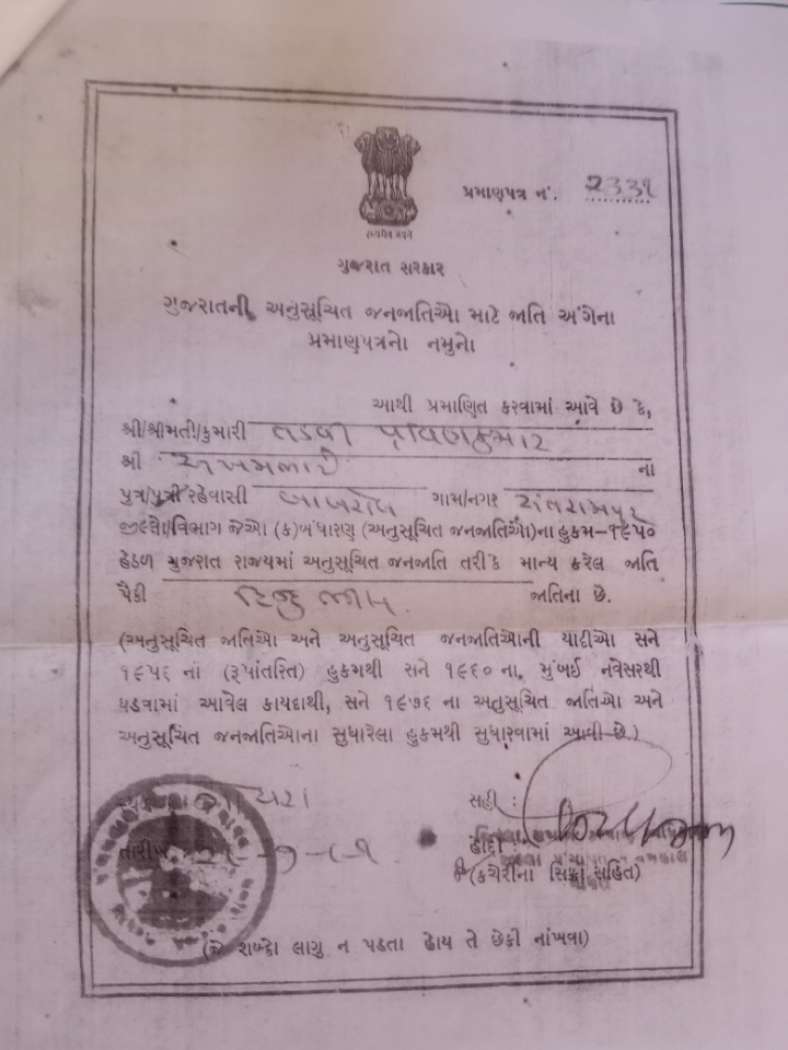 પ્રમાણપત્ર નં. ૨૩૩૧
સત્યમેવ જયતે
ગુજરાત સરકાર
ગુજરાતની અનુસૂચિત જનજાતિઓ માટે જાતિ અંગેના
પ્રમાણપત્રનો નમુનો
આથી પ્રમાણિત કરવામાં આવે છે કે,
શ્રી/શ્રીમતી/કુમારી તડવી પ્રવિણકુમાર
શ્રી ના
પુત્ર/પુત્રી રહેવાસી ગામ/નગર સંતરામપુર
જીલ્લો/વિભાગ જેઓ (ક)બંધારણ (અનુસૂચિત જનજાતિઓ)ના હુકમ-૧૯૫૦
હેઠળ ગુજરાત રાજ્યમાં અનુસૂચિત જનજાતિ તરીકે માન્ય કરેલ જાતિ
પૈકી હિન્દુ ભીલ જાતિના છે.
(અનુસૂચિત જાતિઓ અને અનુસૂચિત જનજાતિઓની યાદીઓ સને
૧૯૫૬ નાં (રૂપાંતરિત) હુકમથી સને ૧૯૬૦ ના, મુંબઈ નવેસરથી
ઘડવામાં આવેલ કાયદાથી, સને ૧૯૭૬ ના અનુસૂચિત જાતિઓ અને
અનુસૂચિત જનજાતિઓના સુધારેલા હુકમથી સુધારવામાં આવી છે.)
સહી :
તારીખ
હોદ્દો
(કચેરીના સિક્કા સહિત)
(જે શબ્દો લાગુ ન પડતા હોય તે છેકી નાંખવા)